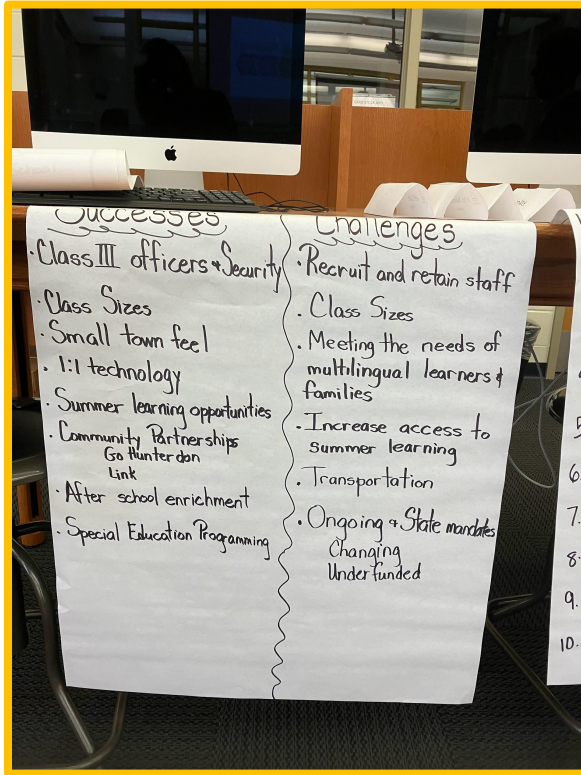 Successes
· Class III officers & Security
· Class Sizes
· Small town feel
· 1:1 technology
· Summer learning opportunities
· Community Partnerships
Go Hunterdon
Link
· After school enrichment
· Special Education Programming
Challenges
· Recruit and retain staff
· Class Sizes
· Meeting the needs of
multilingual learners &
families
· Increase access to
summer learning
· Transportation
· Ongoing & State mandates
Changing
Underfunded
6.
7.
8.
9.
10.